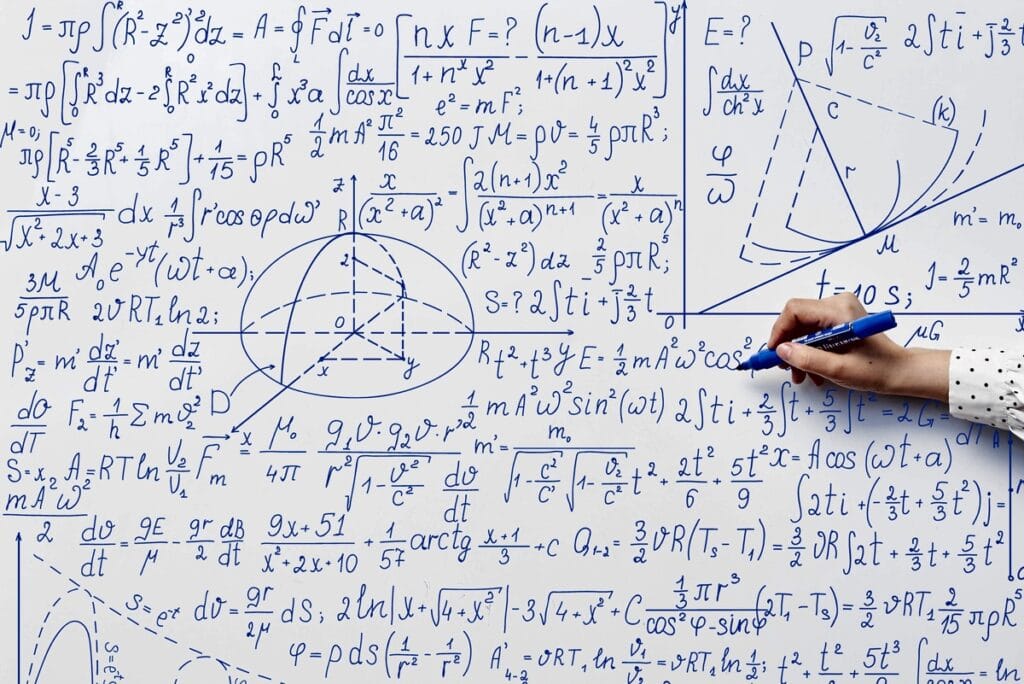 J = πρ ∫₀ᴿ (R²-z²)² dz = A = ∮_L F⃗ dl⃗ = 0 [ (n x F=?)/(1+nˣx²) (n-1)x/(1+(n+1)²x²) ] y E=? P √(1-v₂/c²) 2∫ti+j 2/3 t
= πρ [ ∫₀ᴿ R³dz - 2∫₀ᴿ R²x²dz ] + ∫₀ᴸ x³a ∫dx/cos x e²=mF²; ∫dx/ch²x C (k)
μ=0; πρ[R⁵-2/3R⁵+1/5R⁵]+1/15=ρR⁵ 1/2 mA² π²/16 = 250 J M=ρv=4/5 ρπR³; φ/ω r
(x-3)/√(x²+2x+3) dx 1/r³ ∫r'cos θρdω' z R x/(x²+a)² = ∫2(n+1)x²/(x²+a)ⁿ⁺¹ = x/(x²+a)ⁿ m'=m₀ M
3M/5ρπR A₀e^-γt(ωt+a); 2 (R²-z²)dz 2/5 ρπR⁵; J=2/5 mR²
2vRT₁ln2; O S=? 2∫ti+j 2/3 t O t=10 s; x
P'z=m' dz'/dt'=m' dz/dt' x y R t²+t³y E=1/2 mA²ω²cos² μG
dv/dT F₂=1/h Σmv₂² D 1/2 mA²ω²sin²(ωt) 2∫ti+2/3∫t+5/3∫t²=2G=
S=x₂ A₂=RTln V₂/V₁ F⃗m x μ₀/4π g₁v·g₂v·r'²/r²√(1-v²/c²) dv/dt m'=m₀/√(1-c²/c')√(1-v₂/c²) t²+2t²/6+5t²/9 x=Acos(ωt+a) dt A
mAω²/2 ∫2ti+(-2/3t+5/3t²)j=
dv/dt=gE/μ-gr/2 dB/dt (9x+51)/(x²+2x+10)+1/57 arctg (x+1)/3+C Q₁₋₂=3/2 vR(Ts-T₁)=3/2 vR∫2t+2/3t+5/3t²
S=e⁻ˣ dv=gr/2μ dS; 2ln|x+√(4+x²)|-3√(4+x²)+C (1/3 πr³)/(cos²φ-sinφ) (2T₁-Ts)=3/2 vRT₁ 2/15 πρR⁵
φ=ρds(1/r²-1/r²) A'₄₋₂=vRT₁ ln v₁/v₂=vRT₁ln1/2; t²+t²/2+5t³/6 ∫dx/cos x=ln